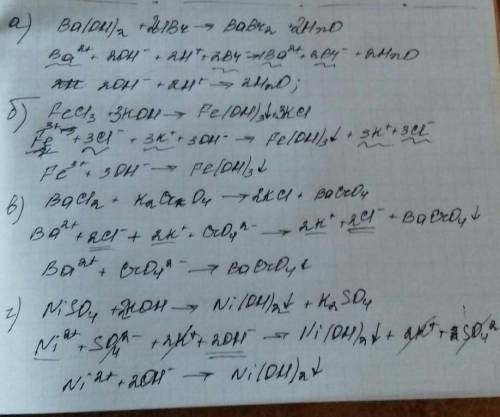 а) Ba(OH)2 + 2HBr → BaBr2 + 2H2O
Ba²⁺ + 2OH⁻ + 2H⁺ + 2Br⁻ → Ba²⁺ + 2Br⁻ + 2H2O
2OH⁻ + 2H⁺ → 2H2O;
б) FeCl3 + 3KOH → Fe(OH)3↓ + 3KCl
Fe³⁺ + 3Cl⁻ + 3K⁺ + 3OH⁻ → Fe(OH)3↓ + 3K⁺ + 3Cl⁻
Fe³⁺ + 3OH⁻ → Fe(OH)3↓
в) BaCl2 + K2CrO4 → 2KCl + BaCrO4
Ba²⁺ + 2Cl⁻ + 2K⁺ + CrO4²⁻ → 2K⁺ + 2Cl⁻ + BaCrO4↓
Ba²⁺ + CrO4²⁻ → BaCrO4↓
г) NiSO4 + 2KOH → Ni(OH)2↓ + K2SO4
Ni²⁺ + SO4²⁻ + 2K⁺ + 2OH⁻ → Ni(OH)2↓ + 2K⁺ + SO4²⁻
Ni²⁺ + 2OH⁻ → Ni(OH)2↓